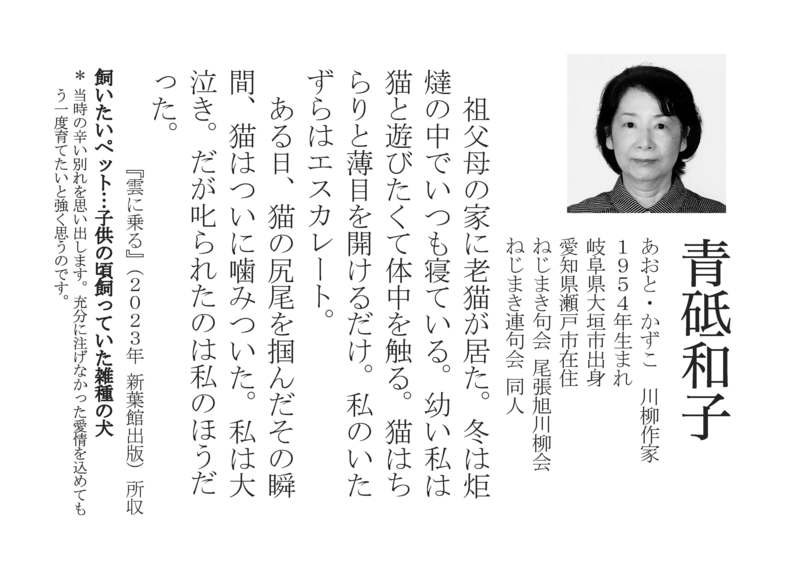 青砥和子
あおと・かずこ　川柳作家
１９５４年生まれ
岐阜県大垣市出身
愛知県瀬戸市在住
ねじまき句会 尾張旭川柳会
ねじまき連句会 同人
祖父母の家に老猫が居た。冬は炬
燵の中でいつも寝ている。幼い私は
猫と遊びたくて体中を触る。猫はち
らりと薄目を開けるだけ。私のいた
ずらはエスカレート。
ある日、猫の尻尾を掴んだその瞬
間、猫はついに噛みついた。私は大
泣き。だが叱られたのは私のほうだ
った。
『雲に乗る』（２０２３年 新葉館出版）所収
飼いたいペット…子供の頃飼っていた雑種の犬
＊ 当時の辛い別れを思い出します。充分に注げなかった愛情を込めても
う一度育てたいと強く思うのです。